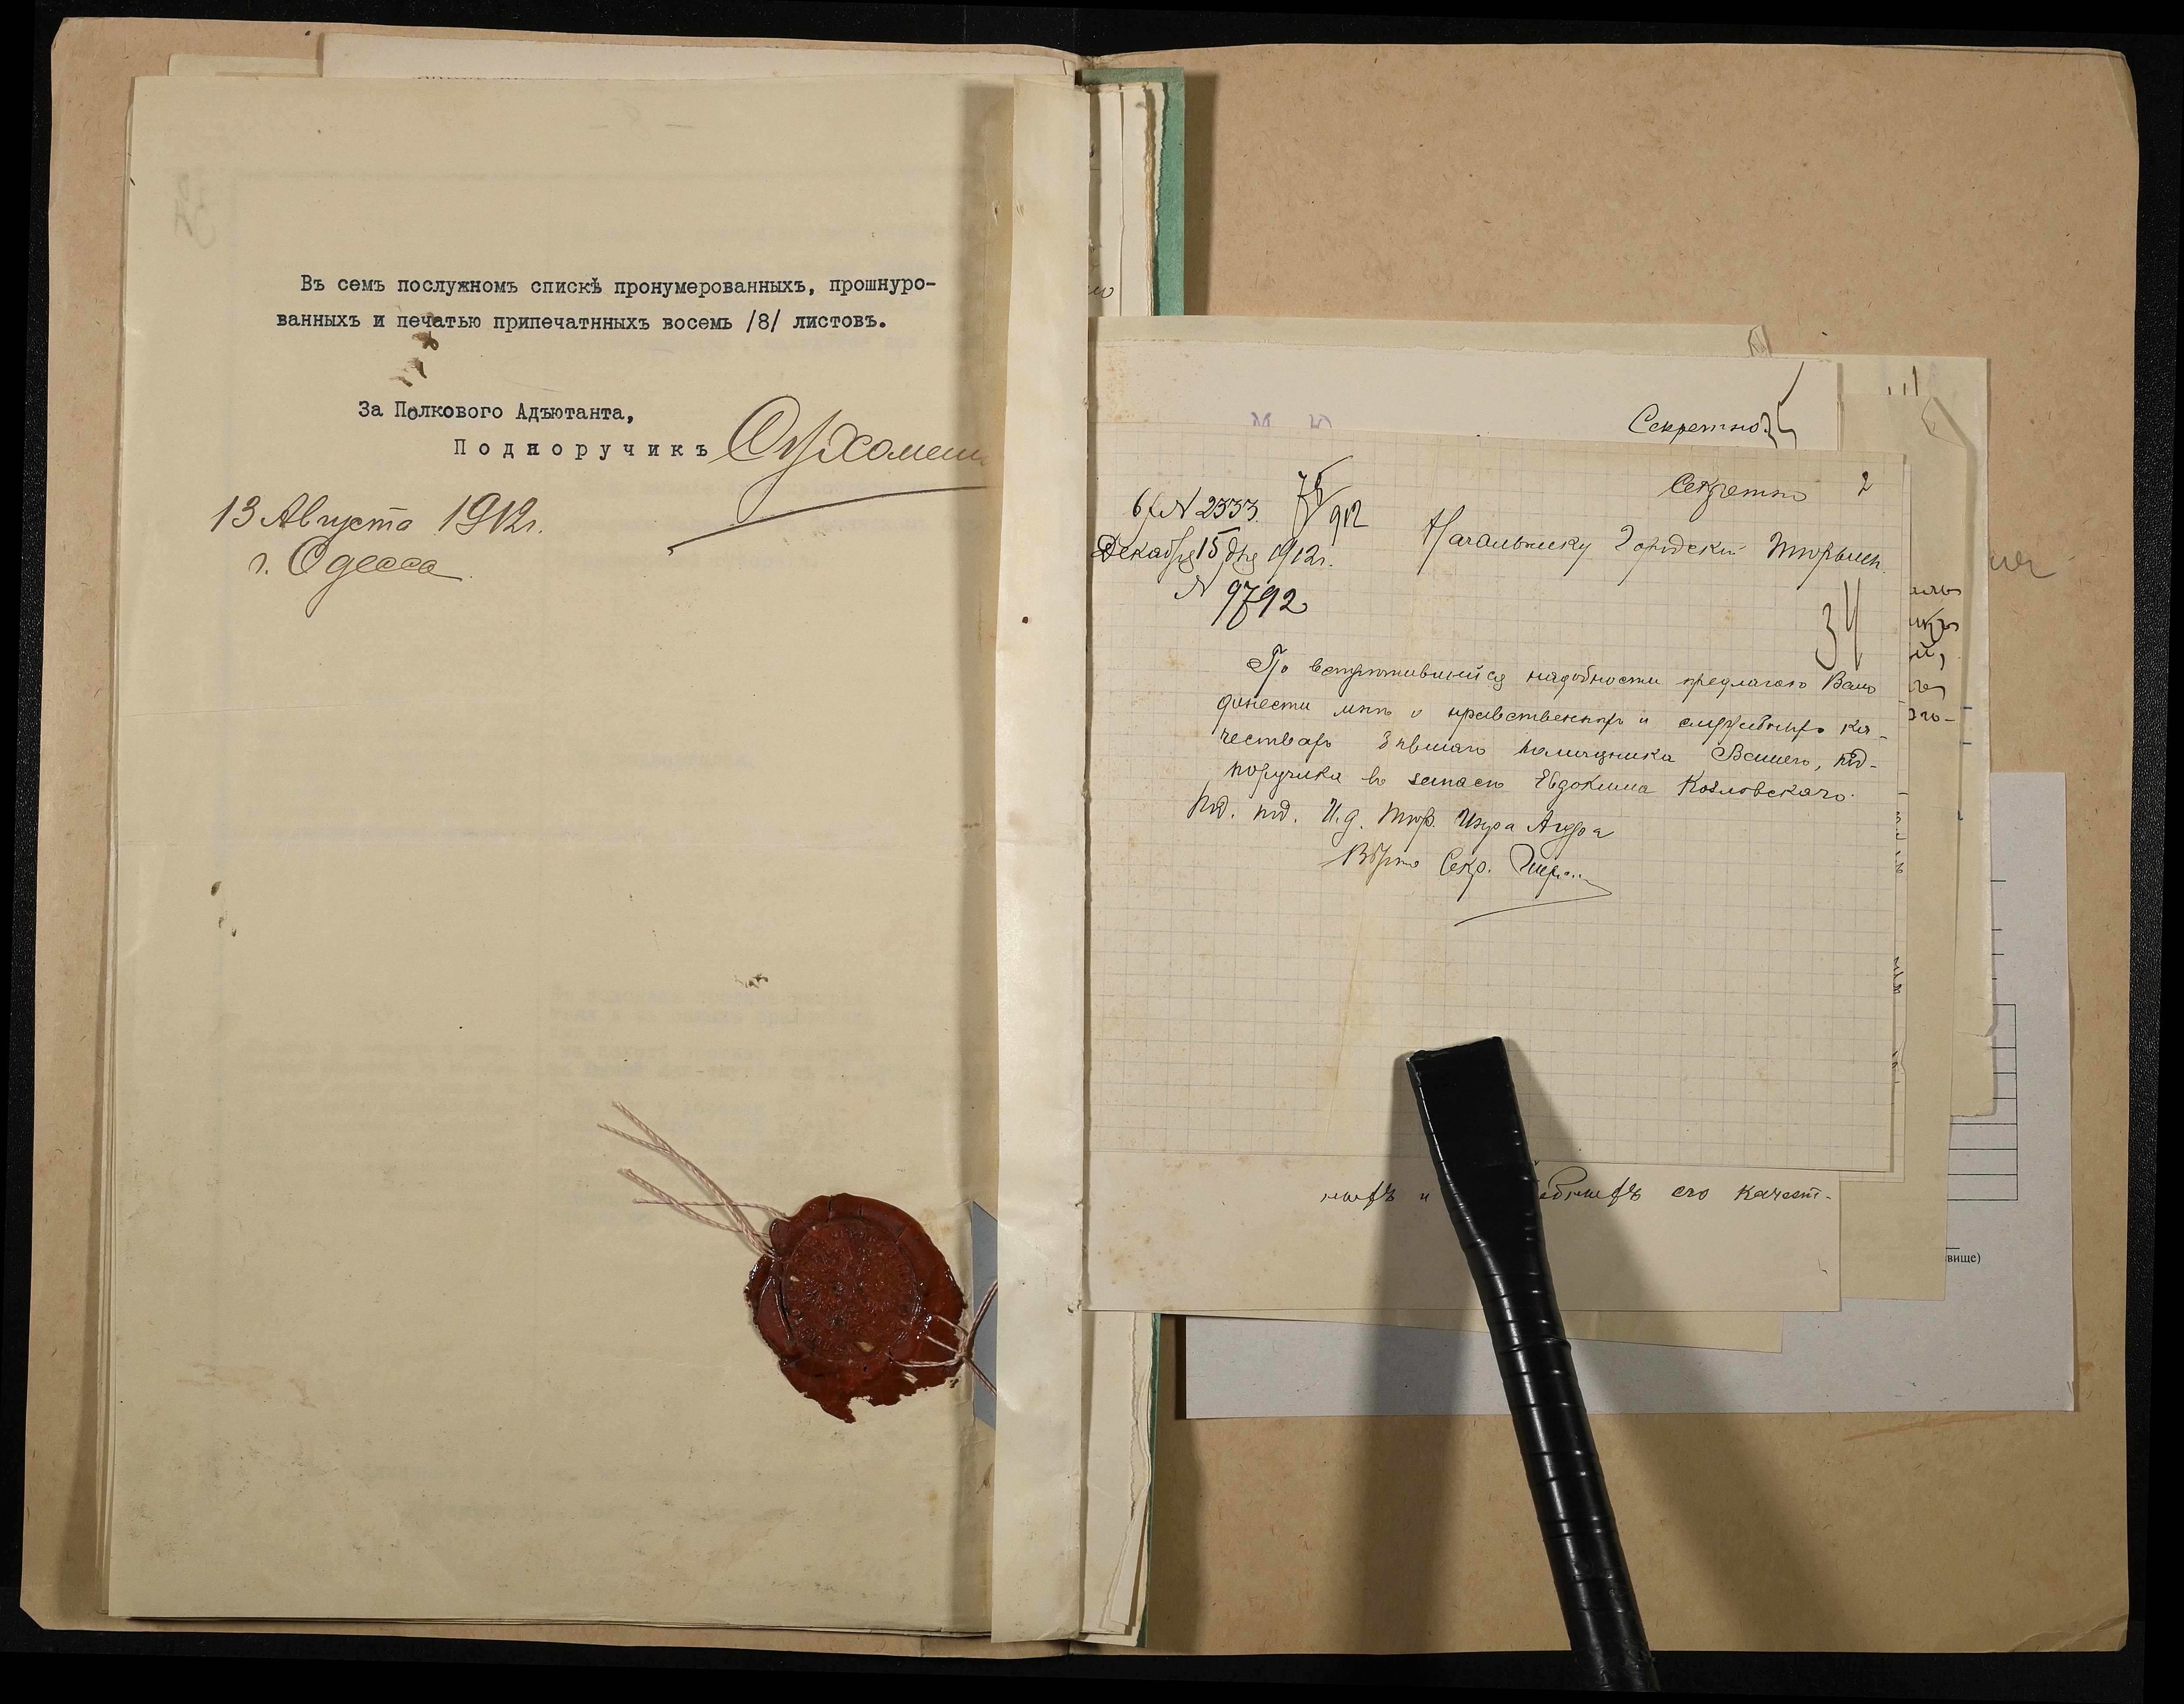 Въ семъ послужномъ спискѣ пронумерованныхъ, прошнуро-
ванныхъ и печатью припечатнныхъ восемь /8/ листовъ.
За Полкового Адъютанта,
Подпоручикъ
13 Августа 1912г.
г. Одесса
Секретно
Секретно 2
№ 2333.
Декабря 15 дня 1912г.
№ 9792
Начальнику Городской Тюрьмы
34
По встрѣтившейся надобности предлагаю Вамъ
донести мнѣ о нравственныхъ и служебныхъ ка-
чествахъ бывшаго помощника Вашего, под-
поручика въ запасѣ Евдокима Козловскаго.
Вѣрно Секр.
ныхъ и его качест-
вище)